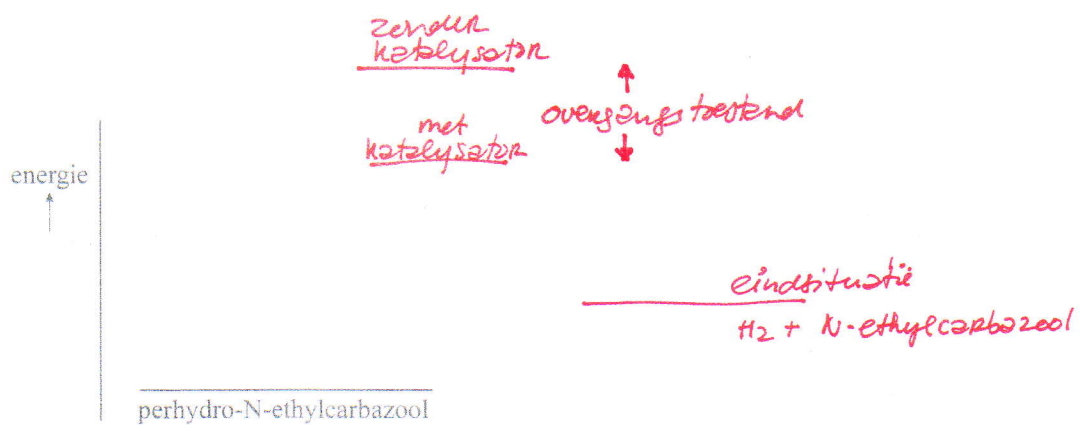 zonder
katalysator
overgangstoestand
met
katalysator
energie
eindsituatie
H2 + N-ethylcarbazool
perhydro-N-ethylcarbazool